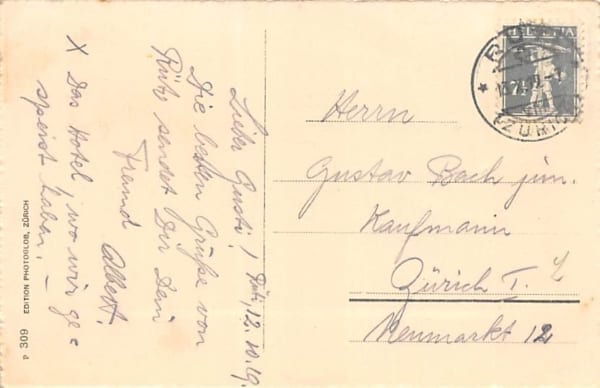 Rüti, 12.10.19.
Lieber Gusti!
Die besten Grüße von
Rüti sendet Dir Dein
Freund Albert.
X Das Hotel, wo wir ge-
speist haben. –
Herrn
Gustav Bach jun.
Kaufmann
Zürich I.
Neumarkt 12
HELVETIA
RÜTI
(ZÜRICH)
P 309 EDITION PHOTOGLOB, ZÜRICH